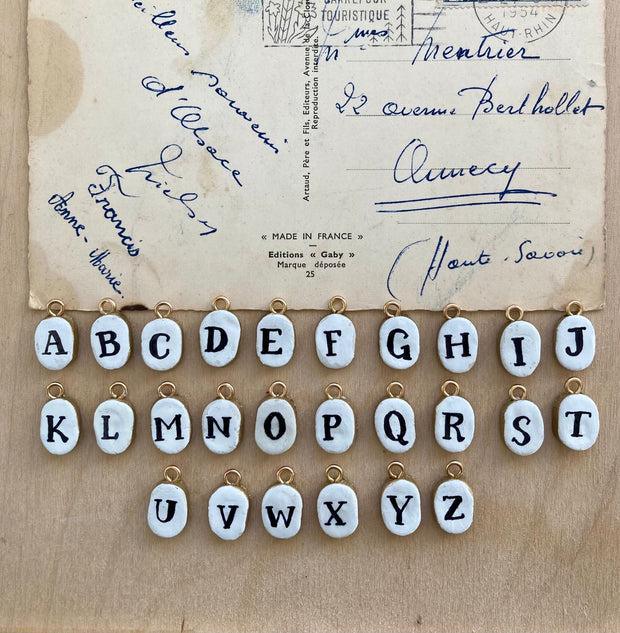 CARREFOUR
TOURISTIQUE
1954
HAUT-RHIN
souvenir
d'Alsace
Francis
Anne-Marie.
Artaud, Père et Fils, Editeurs, Avenue de la
Reproduction interdite.
Mentrier
22 avenue Berthollet
Annecy
(Haute-Savoie)
« MADE IN FRANCE »
Editions « Gaby »
Marque déposée
25
A B C D E F G H I J
K L M N O P Q R S T
U V W X Y Z